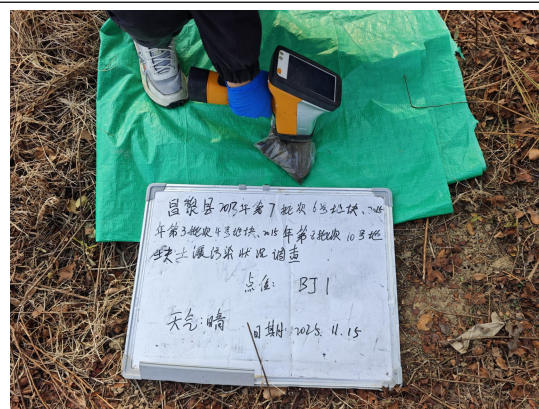 昌黎县2025年第7批次6号地块、2025
年第3批次4号地块、2025年第2批次10号地
块土壤污染状况调查
点位: BJ1
天气:晴 日期:2025.11.15